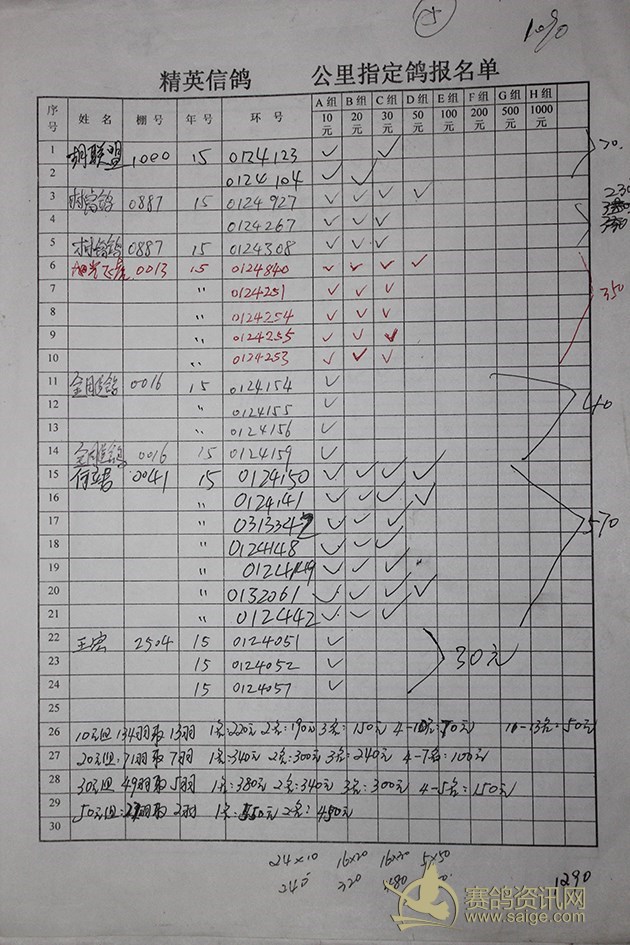 5
1090
精英信鸽 公里指定鸽报名单
序号 姓名 棚号 年号 环号 A组10元 B组20元 C组30元 D组50元 E组100元 F组200元 G组500元 H组1000元
1 胡联盟 1000 15 0124123 ✓ ✓
2 0124104 ✓ ✓
3 0887 15 0124927 ✓ ✓ ✓ ✓
4 0124267 ✓ ✓ ✓
5 0887 15 0124308 ✓ ✓ ✓
6 0013 15 0124840 ✓ ✓ ✓ ✓
7 〃 0124251 ✓ ✓ ✓
8 〃 0124254 ✓ ✓ ✓
9 〃 0124255 ✓ ✓ ✓
10 〃 0124253 ✓ ✓ ✓
350
11 0016 15 0124154 ✓
12 〃 0124155 ✓
13 〃 0124156 ✓
14 0016 15 0124159 ✓
40
15 0041 15 0124150 ✓ ✓ ✓ ✓
16 〃 0124141 ✓ ✓ ✓ ✓
17 〃 0313342 ✓ ✓ ✓
18 〃 0124148 ✓ ✓ ✓
19 〃 0124149 ✓ ✓ ✓
20 〃 0132061 ✓ ✓ ✓ ✓
21 〃 012442 ✓ ✓ ✓
570
22 王宏 2504 15 0124051 ✓
23 15 0124052 ✓
24 15 0124057 ✓
30元
25
26 10元组 134羽取13羽 1名:220元 2名:190元 3名:150元 4-10名:70元 11-13名:50元
27 20元组:71羽取7羽 1名:340元 2名:300元 3名:240元 4-7名:100元
28 30元组 49羽取5羽 1名:380元 2名:340元 3名:300元 4-5名:150元
29 50元组: 羽取2羽 1名:550元 2名:450元
30
24×10 16×20 16×30 5×50
240 320 480
1290
赛鸽资讯网
www.saige.com